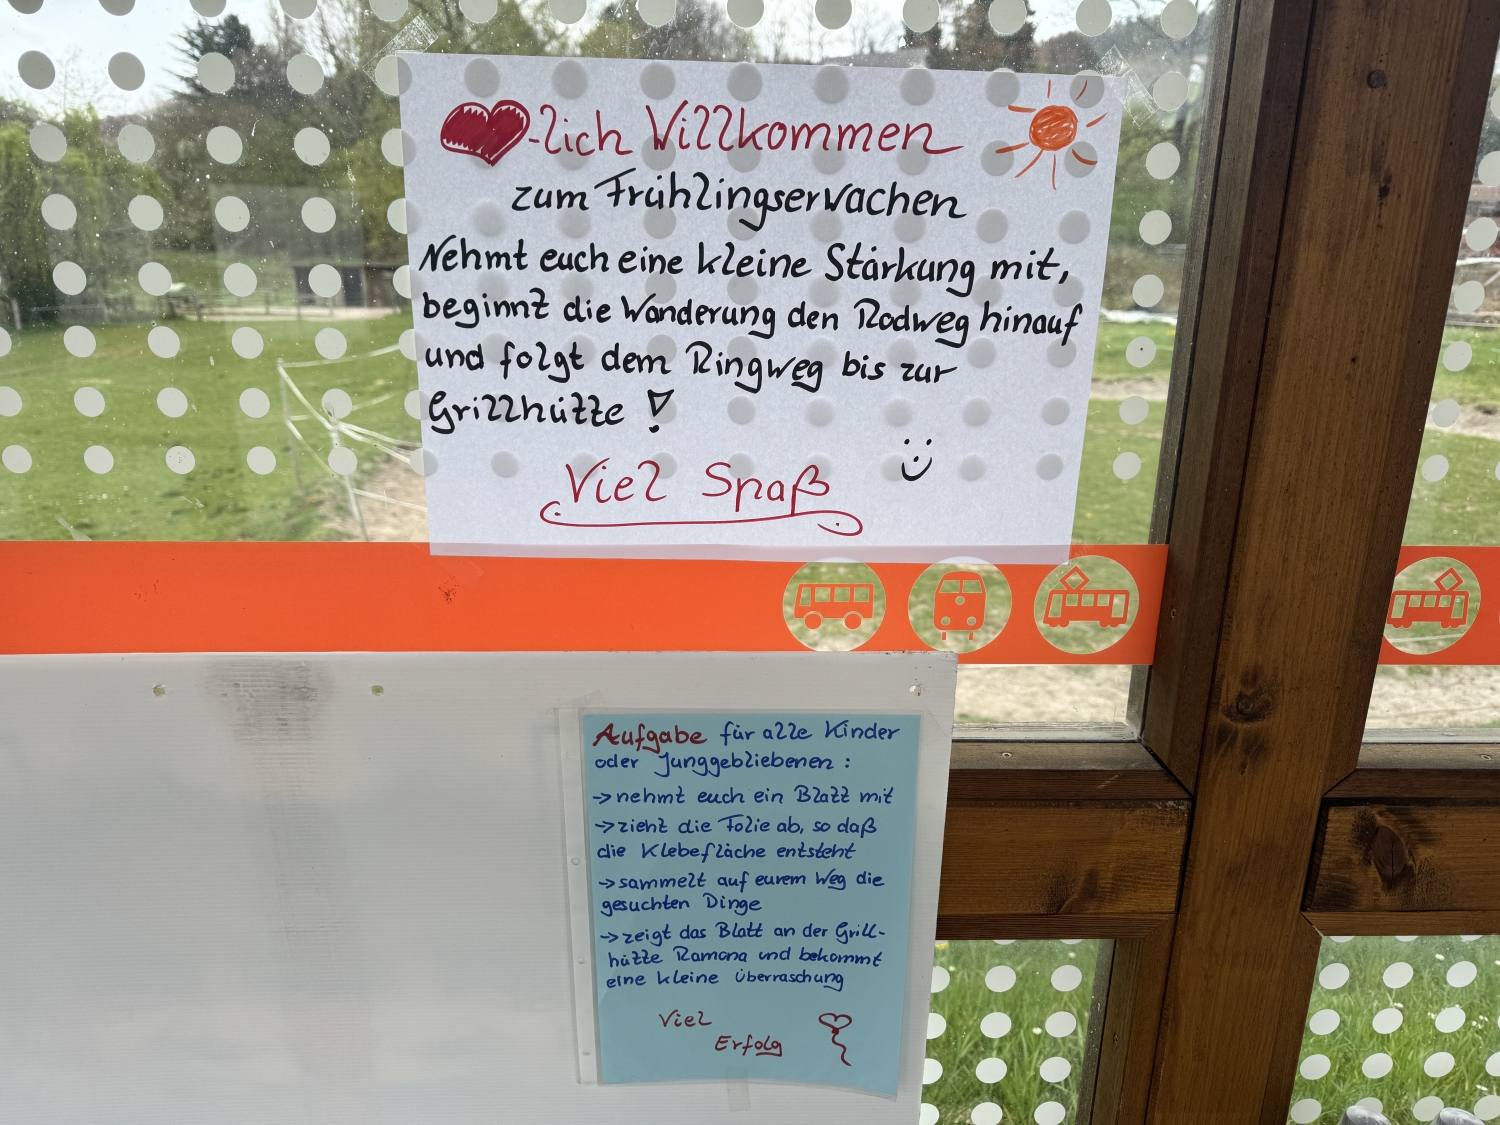 -lich Willkommen
zum Frühlingserwachen
Nehmt euch eine kleine Stärkung mit,
beginnt die Wanderung den Rodweg hinauf
und folgt dem Ringweg bis zur
Grillhütte !
Viel Spaß
Aufgabe für alle Kinder
oder Junggebliebenen :
→ nehmt euch ein Blatt mit
→ zieht die Folie ab, so daß
die Klebefläche entsteht
→ sammelt auf eurem Weg die
gesuchten Dinge
→ zeigt das Blatt an der Grill-
hütte Ramona und bekommt
eine kleine Überraschung
Viel
Erfolg